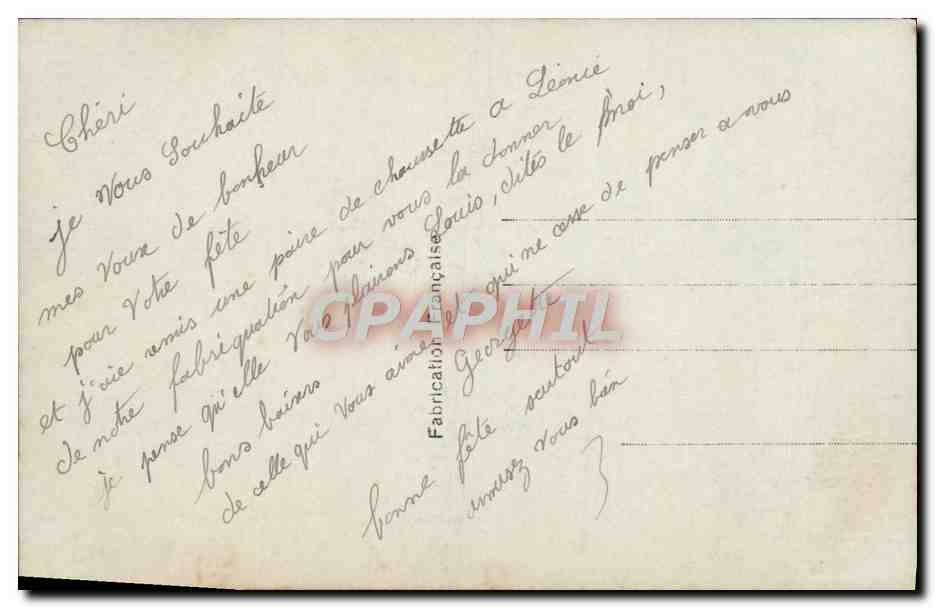 Chéri
je Vous Souhaite
mes voux de bonheur
pour Votre fête
et j'aie remis une paire de chaussette a Léonie
de notre fabriquation pour vous la donner
je pense qu'elle vous plairons Louis, dites le moi,
bons baisers
de celle qui vous aime et qui ne cesse de penser a vous
Georgette
bonne fête surtout
amusez vous bién
Fabrication Française
CPAPHIL